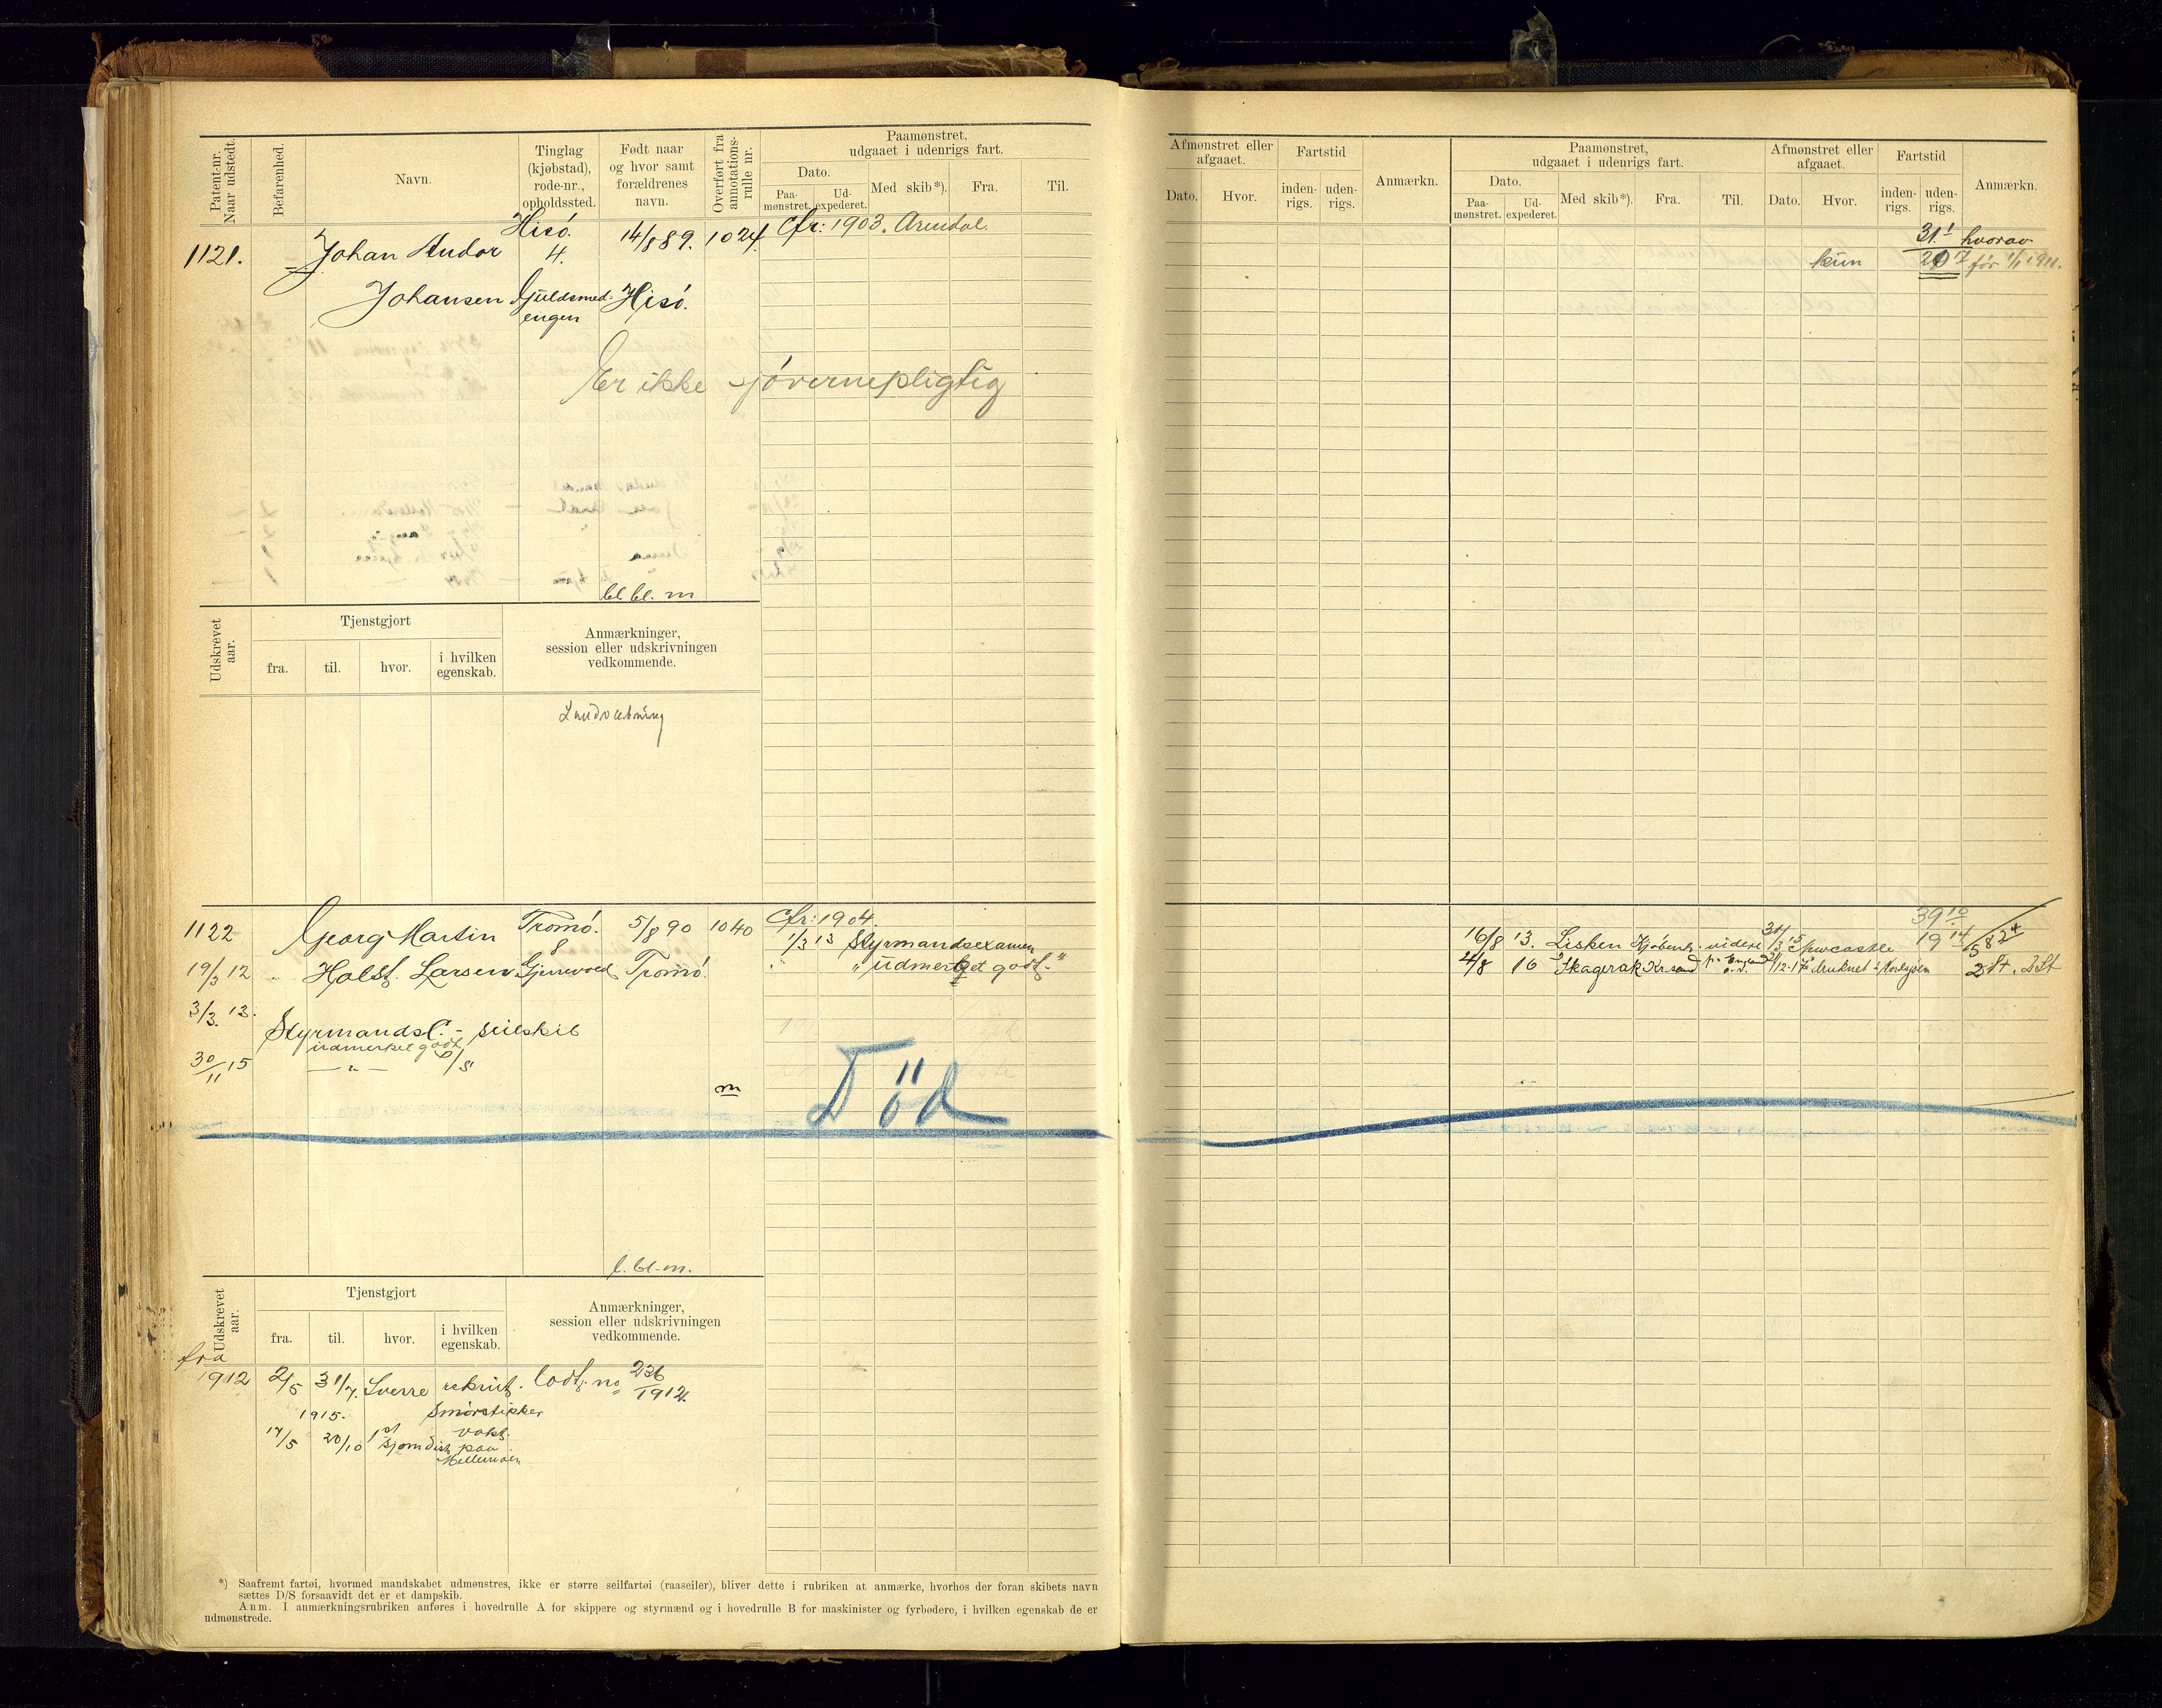 Patent-nr. Naar udstedt.
Befarenhed.
Navn.
Tinglag (kjøbstad), rode-nr., opholdssted.
Født naar og hvor samt forældrenes navn.
Overført fra annotations-rulle nr.
Paamønstret, udgaaet i udenrigs fart.
Dato.
Paa-mønstret.
Ud-expederet.
Med skib*).
Fra.
Til.
Afmønstret eller afgaaet.
Dato.
Hvor.
Fartstid
inden-rigs.
uden-rigs.
Anmærkn.
Paamønstret, udgaaet i udenrigs fart.
Dato.
Paa-mønstret.
Ud-expederet.
Med skib*).
Fra.
Til.
Afmønstret eller afgaaet.
Dato.
Hvor.
Fartstid
inden-rigs.
uden-rigs.
Anmærkn.
1121.
Johan Andor
Johansen
Hisö.
4.
Gjuldsmed-
engen
14/8 89.
Hisö.
1024.
Cfr: 1903. Arendal.
31 hvorav
kun
før 1/1 1911.
Er ikke sjövernepligtig
bl bl. m
Udskrevet aar.
Tjenstgjort
fra.
til.
hvor.
i hvilken egenskab.
Anmærkninger, session eller udskrivningen vedkommende.
Landvæbning
1122
19/3 12
Georg Martin
Holst. Larsen
Tromö.
8
Gjerrevold
5/8 90
Tromö.
1040
Cfr: 1904.
1/3 13 Styrmandsexamen
" "udmerket godt."
3/3. 13.
StyrmandsC. - seilskib
udmerket godt
30/11 15
— " — D/S
m
Död
16/8 13. Lisken Kjøbenh. videre Newcastle
4/8 16 Skagerak Kr.sand England druknet i Nordsjøen
39 10
19 14
58 24
2 St. 2 St
l. bl. m.
Udskrevet aar.
Tjenstgjort
fra.
til.
hvor.
i hvilken egenskab.
Anmærkninger, session eller udskrivningen vedkommende.
fra
1912
2/5 31/7. Sverre rekrut. Lodt. no 236/1912.
1915. Smörstikker
17/5 20/10 1st Sjømdist. vakt. paa
*) Saafremt fartøi, hvormed mandskabet udmønstres, ikke er større seilfartøi (raaseiler), bliver dette i rubriken at anmærke, hvorhos der foran skibets navn
sættes D/S forsaavidt det er et dampskib.
Anm. I anmærkningsrubriken anføres i hovedrulle A for skippere og styrmænd og i hovedrulle B for maskinister og fyrbødere, i hvilken egenskab de er
udmønstrede.